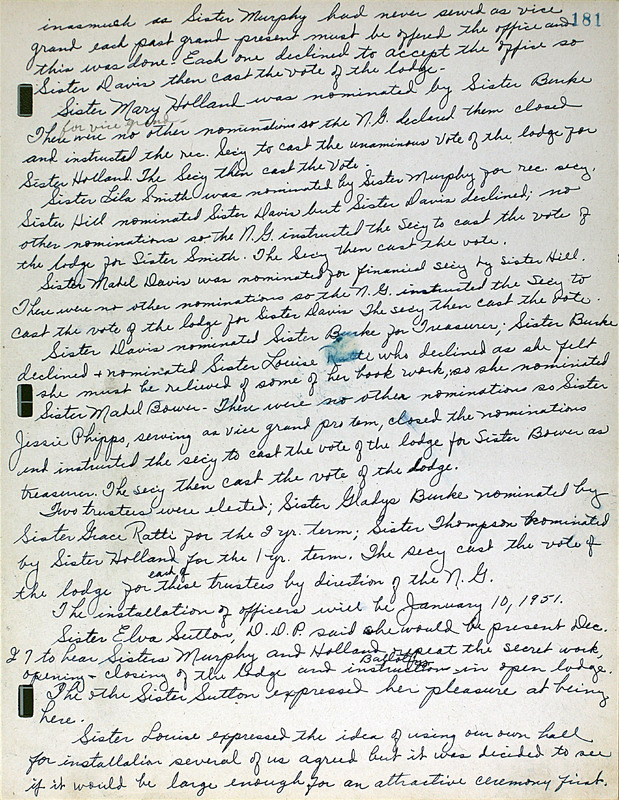 181
inasmuch as Sister Murphy had never served as vice
grand each past grand present must be offered the office and
this was done. Each one declined to accept the office so
Sister Davis then cast the vote of the lodge.
Sister Mary Holland was nominated by Sister Burke
for vice grand
There were no other nominations so the N.G. declared them closed
and instructed the rec. Secy to cast the unanimous vote of the lodge for
Sister Holland. The Secy then cast the vote.
Sister Lila Smith was nominated by Sister Murphy for rec. secy.
Sister Hill nominated Sister Davis but Sister Davis declined; no
other nominations so the N.G. instructed the Secy to cast the vote of
the lodge for Sister Smith. The Secy then cast the vote.
Sister Mabel Davis was nominated for financial secy by Sister Hill.
There were no other nominations so the N.G. instructed the Secy to
cast the vote of the lodge for Sister Davis The secy then cast the vote.
Sister Davis nominated Sister Burke for Treasurer; Sister Burke
declined + nominated Sister Louise Ratti who declined as she felt
she must be relieved of some of her book work, so she nominated
Sister Mabel Bower - There were no other nominations so Sister
Jessie Phipps, serving as vice grand pro tem, closed the nominations
and instructed the secy to cast the vote of the lodge for Sister Bower as
treasurer. The secy then cast the vote of the lodge.
Two trustees were elected; Sister Gladys Burke nominated by
Sister Grace Ratti for the 2 yr. term; Sister Thompson nominated
by Sister Holland for the 1-yr. term. The secy cast the vote of
each of
the lodge for these trustees by direction of the N.G.
The installation of officers will be January 10, 1951.
Sister Elva Sutton, D.D.P. said she would be present Dec.
27 to hear Sisters Murphy and Holland repeat the secret work,
Balloting
opening + closing of the lodge and instruction in open lodge.
The Sister Sutton expressed her pleasure at being
here.
Sister Louise expressed the idea of using our own hall
for installation several of us agreed but it was decided to see
if it would be large enough for an attractive ceremony first.